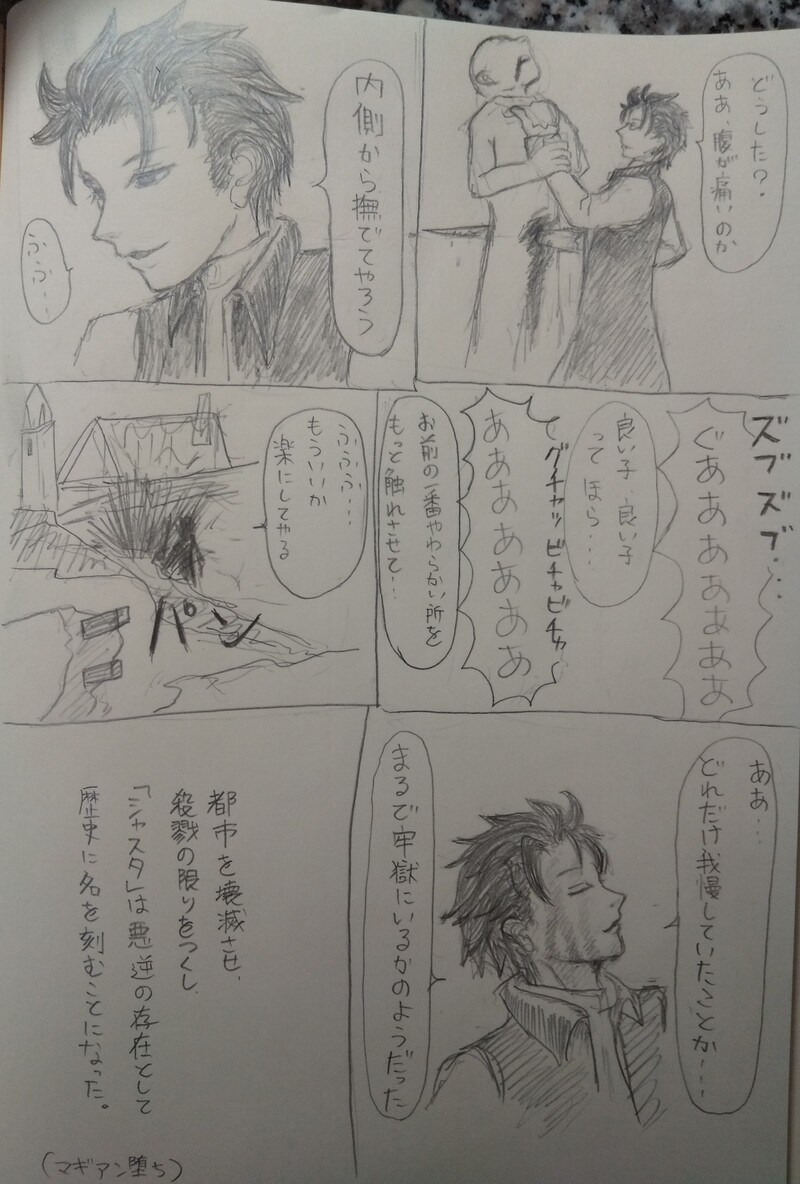 どうした?
ああ、腹が痛いのか
内側から撫でてやろう
ふふ…
ズブズブ…
ぐああああああああ
良い子、良い子
って ほら…
グチャッ ビチャビチャ
ああああああああ
お前の一番やわらかい所を
もっと触れさせて…
ふふふ…
もういいか
楽にしてやる
パン
ああ…
どれだけ我慢していたことか…
まるで牢獄にいるかのようだった
都市を壊滅させ、
殺戮の限りをつくし、
「シャスタ」は悪逆の存在として
歴史に名を刻むことになった。
(マギアン堕ち)